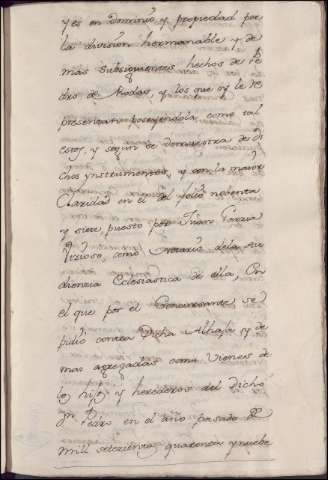 y es en dominio y propiedad por
la division hermanable y de
mas subsiguientes hechos de Pe
dro de Rodas, y los que oy le re
presentan poseyendola, como tal
estos, y segun se demuestra de di
chos ynstrumentos, y con la maior
Claridad en el del folio noventa
y siete puesto por Juan Garzia
como Notario dela Au
diencia Eclesiastica de ella, En
el que por el Concursante se
pidio contra Dicha Alhaja y de
mas agregadas como Vienes de
los hijos y herederos del dicho
Dn Pedro en el año pasado de
mill setecientos quarenta y nuebe